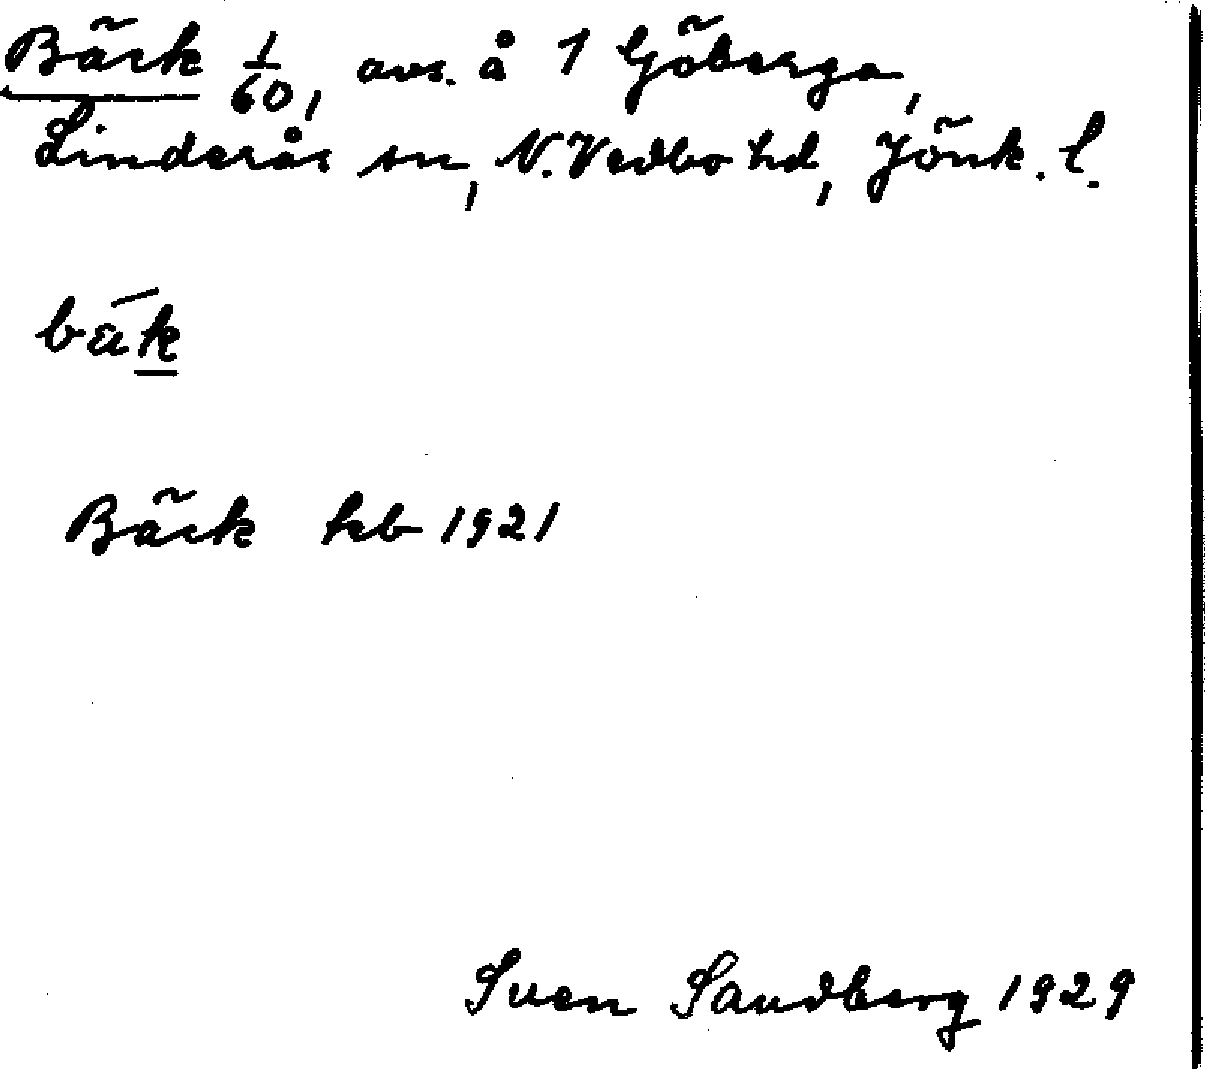 Bäck 1/60, avs. å 1 Göberga,
Linderås sn, N. Vedbo hd, Jönk. l.
bäk
Bäck kb 1921
Sven Sandberg 1929